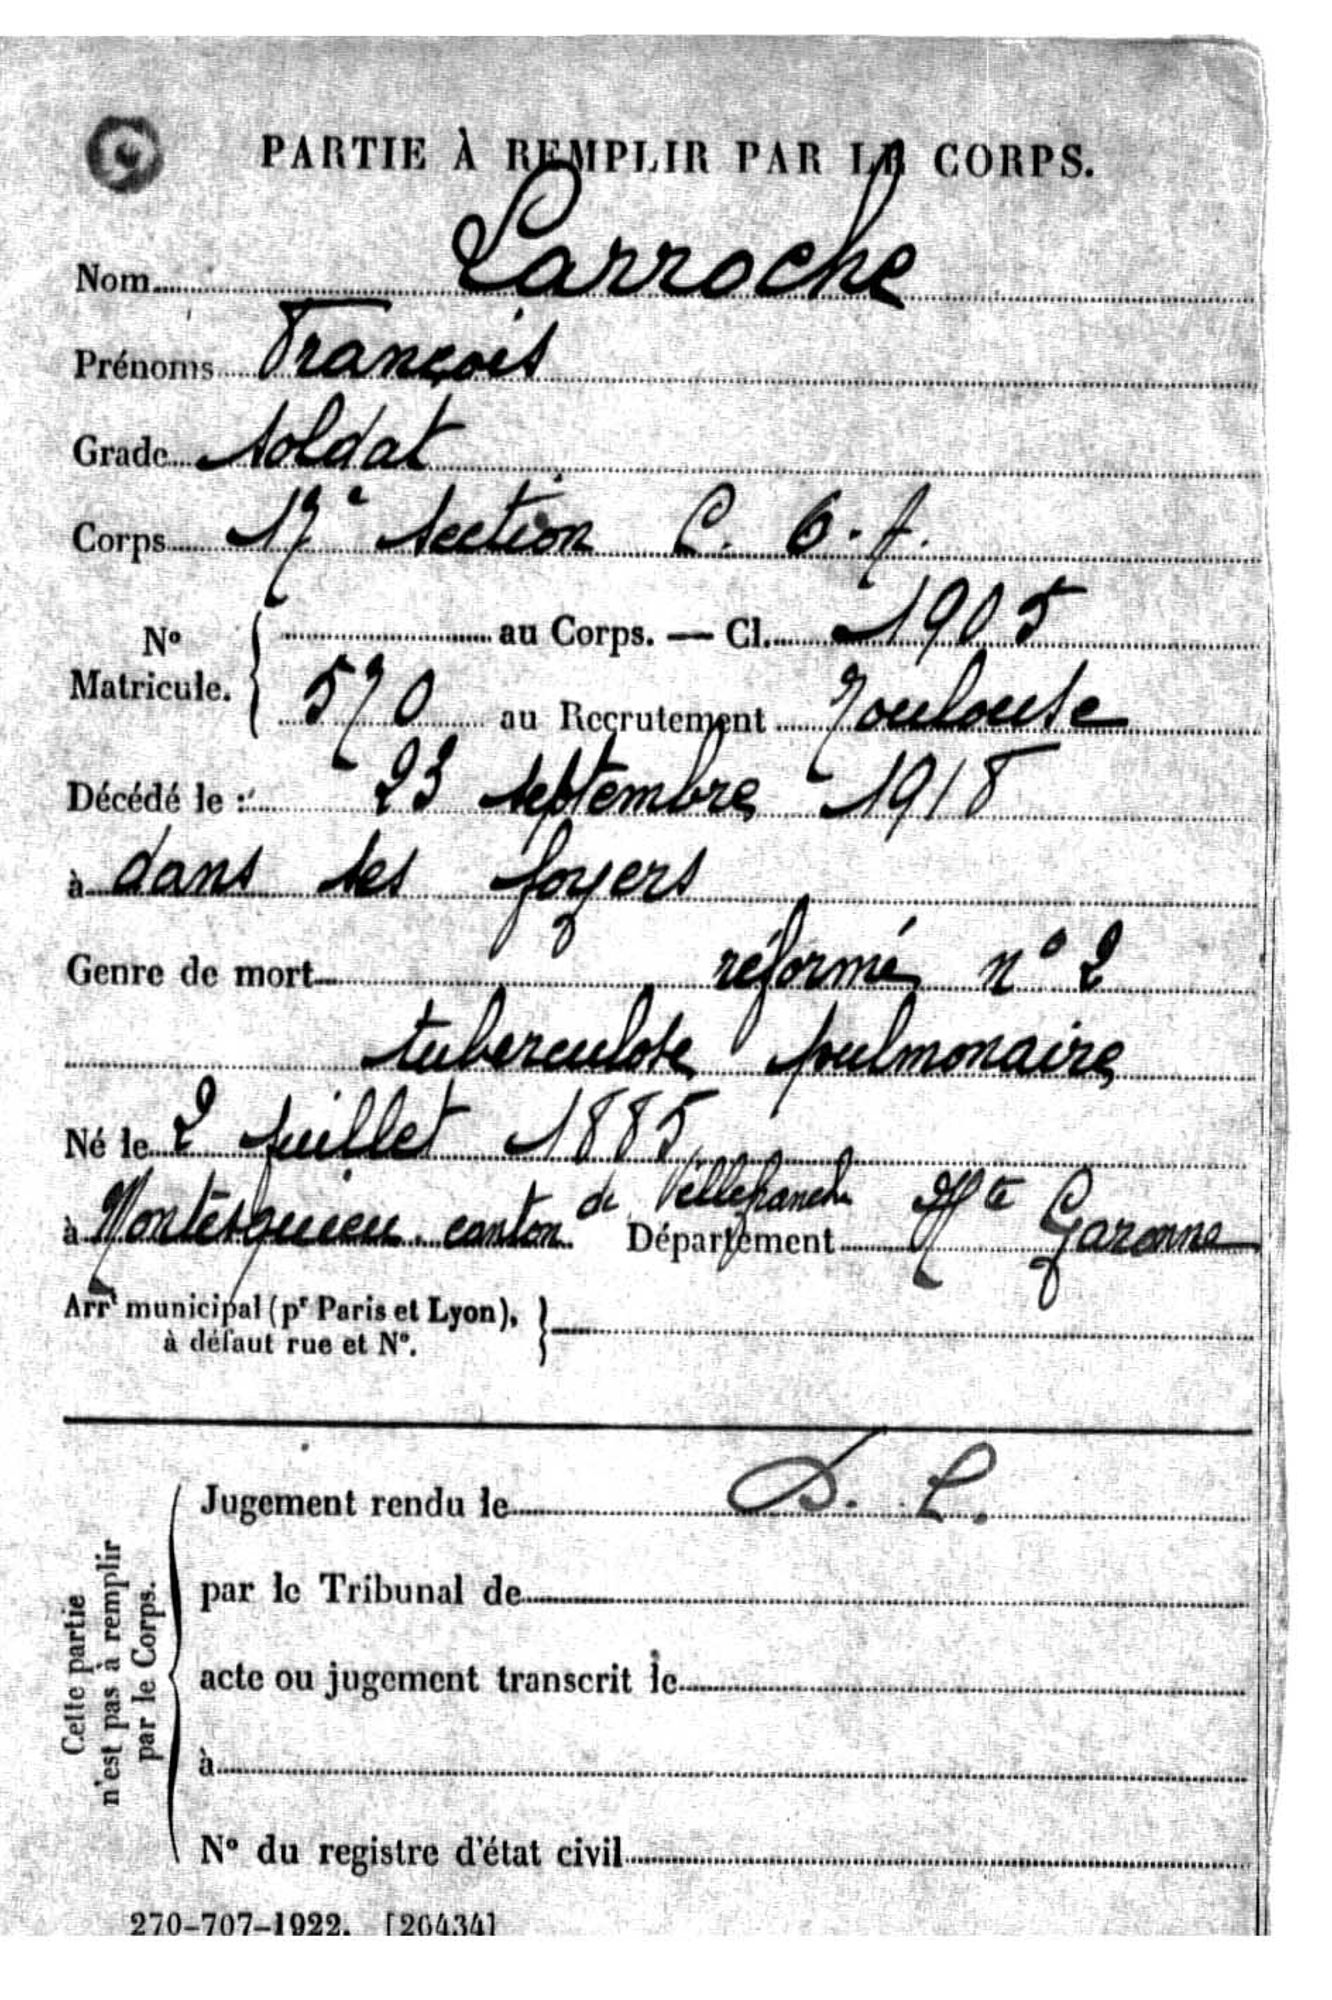 PARTIE À REMPLIR PAR LE CORPS.
Nom Larroche
Prénoms François
Grade soldat
Corps 17e section C. O. A.
No Matricule. au Corps. — Cl. 1905
570 au Recrutement Toulouse
Décédé le : 23 septembre 1918
à dans ses foyers
Genre de mort réformé no 2
tuberculose pulmonaire
Né le 2 juillet 1885
à Montesquieu. canton de Villefranche Département Hte Garonne
Arrt municipal (pr Paris et Lyon),
à défaut rue et No.
Cette partie
n'est pas à remplir
par le Corps.
Jugement rendu le D. C.
par le Tribunal de
acte ou jugement transcrit le
à
No du registre d'état civil
270-707-1922. [26434]